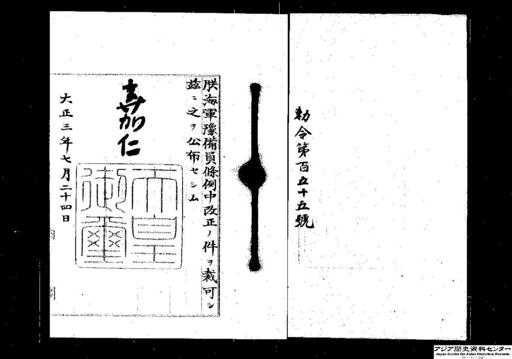 勅令第百五十五號
朕海軍豫備員條例中改正ノ件ヲ裁可シ
茲ニ之ヲ公布セシム
嘉仁
天皇御璽
大正三年七月二十四日
アジア歴史資料センター
Japan Center for Asian Historical Records